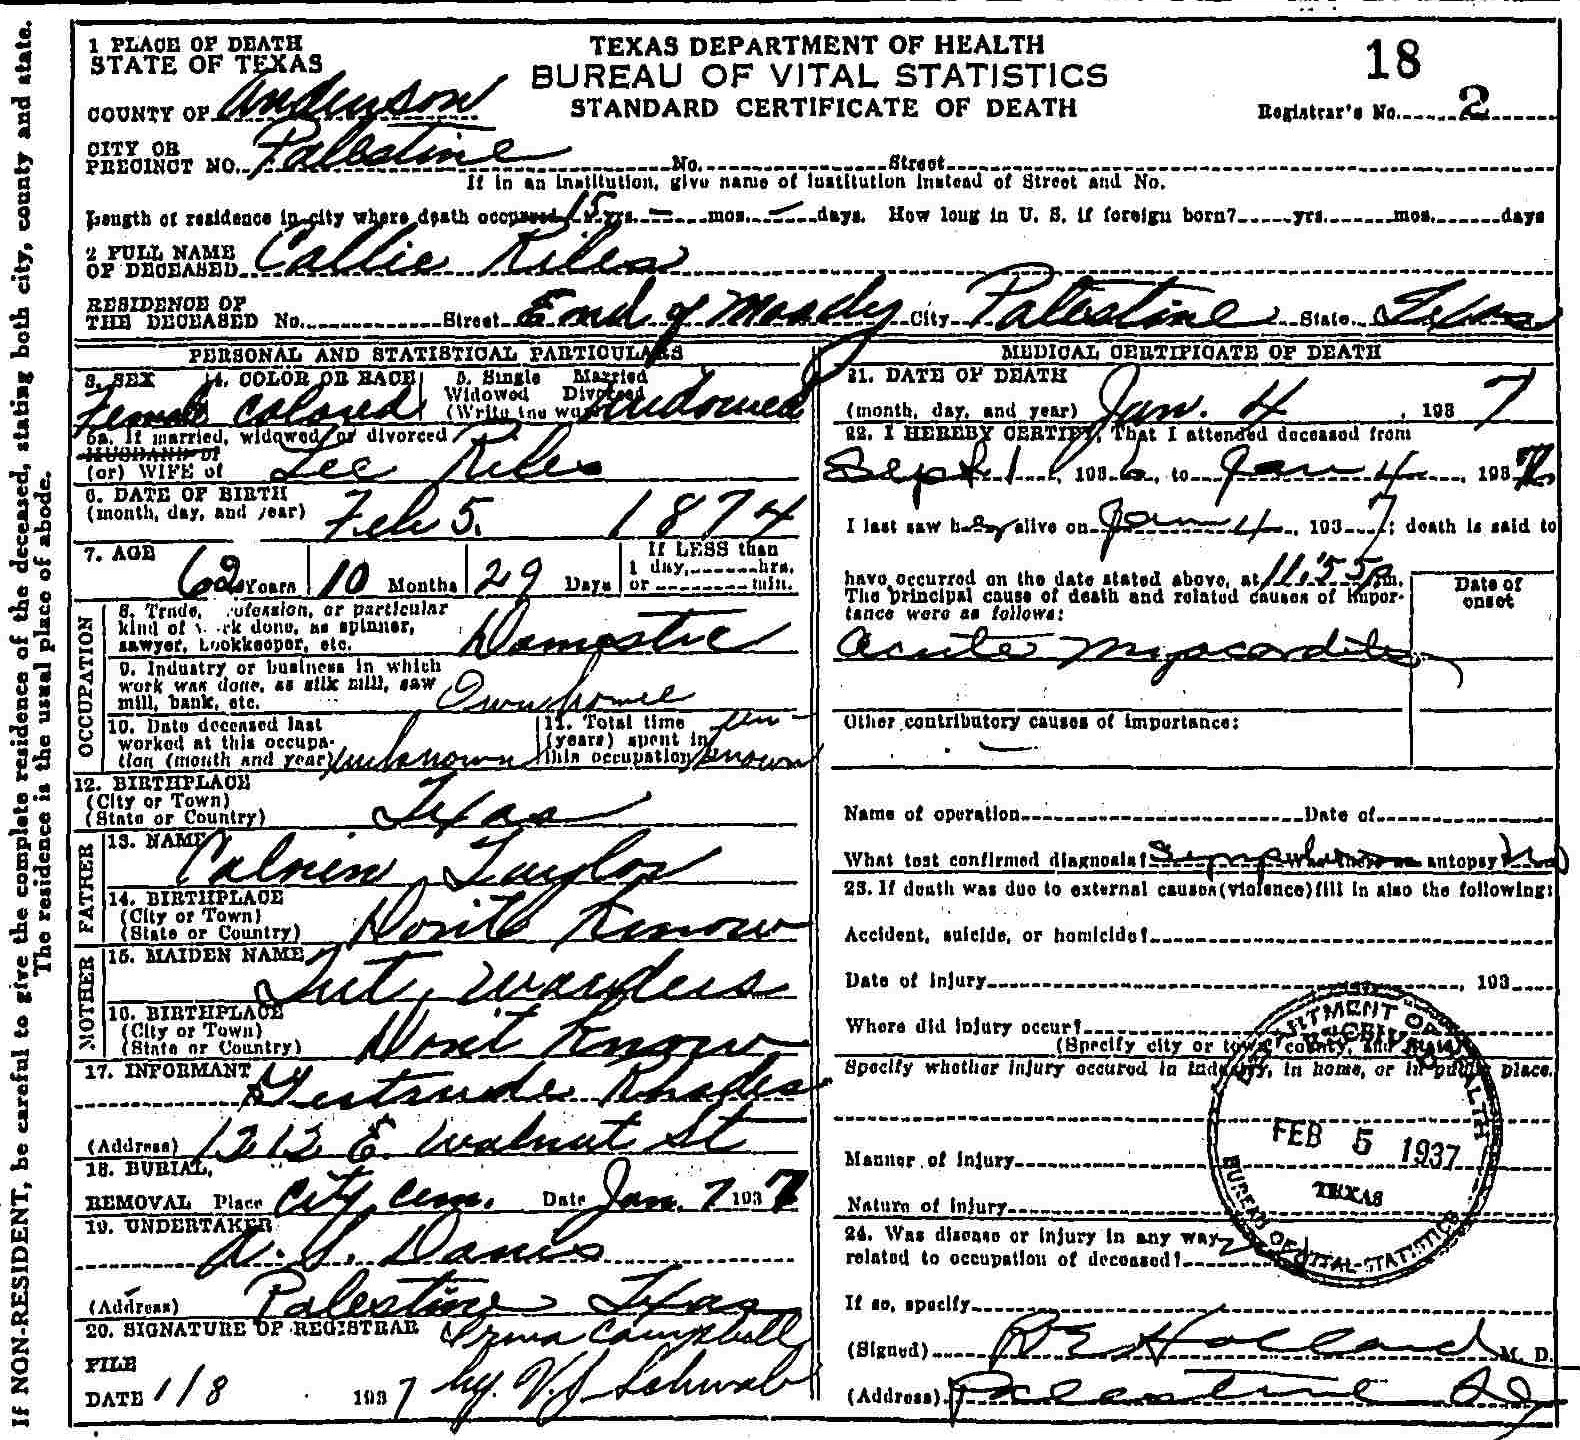 If NON-RESIDENT, be careful to give the complete residence of the deceased, stating both city, county and state.
The residence is the usual place of abode.
1 PLACE OF DEATH
STATE OF TEXAS
COUNTY OF Anderson
CITY OR
PRECINCT NO. Palestine No. Street
TEXAS DEPARTMENT OF HEALTH
BUREAU OF VITAL STATISTICS
STANDARD CERTIFICATE OF DEATH
18
Registrar's No. 2
If in an institution, give name of institution instead of Street and No.
Length of residence in city where death occurred 15 yrs. - mos. - days. How long in U. S. if foreign born? yrs. mos. days
2 FULL NAME
OF DECEASED Callie Riles
RESIDENCE OF
THE DECEASED No. Street End of Moody City Palestine State Texas
PERSONAL AND STATISTICAL PARTICULARS
3. SEX
Female
4. COLOR OR RACE
Colored
5. Single Married
Widowed Divorced
(Write the word) Widowed
5a. If married, widowed, or divorced
HUSBAND of
(or) WIFE of Lee Riles
6. DATE OF BIRTH
(month, day, and year) Feb 5. 1874
7. AGE
62 Years 10 Months 29 Days
If LESS than
1 day, hrs.
or min.
OCCUPATION
8. Trade, profession, or particular
kind of work done, as spinner,
sawyer, bookkeeper, etc. Domestic
9. Industry or business in which
work was done, as silk mill, saw
mill, bank, etc. Own home
10. Date deceased last
worked at this occupa-
tion (month and year) unknown
11. Total time
(years) spent in
this occupation un-
known
12. BIRTHPLACE
(City or Town)
(State or Country) Texas
FATHER
13. NAME Calvin Taylor
14. BIRTHPLACE
(City or Town)
(State or Country) Don't Know
MOTHER
15. MAIDEN NAME
16. BIRTHPLACE
(City or Town)
(State or Country) Don't Know
17. INFORMANT Gertrude Rhodes
(Address) 1212 E. Walnut St
18. BURIAL,
REMOVAL Place City Cem. Date Jan. 7 1937
19. UNDERTAKER
A. S. Davis
(Address) Palestine Texas
20. SIGNATURE OF REGISTRAR Irma Campbell
FILE
DATE 1/8 1937 by. V.J. Schwab
MEDICAL CERTIFICATE OF DEATH
21. DATE OF DEATH
(month, day, and year) Jan. 4, 1937
22. I HEREBY CERTIFY, That I attended deceased from
Sept 1, 1936, to Jan 4, 1937
I last saw her alive on Jan 4, 1937; death is said to
have occurred on the date stated above, at 11:55 p.m.
The principal cause of death and related causes of impor-
tance were as follows:
Date of
onset
Acute Myocarditis
Other contributory causes of importance:
Name of operation Date of
What test confirmed diagnosis? Symptoms Was there an autopsy No
23. If death was due to external causes (violence) fill in also the following:
Accident, suicide, or homicide?
Date of injury , 193
Where did injury occur?
(Specify city or town, county, and State)
Specify whether injury occured in industry, in home, or in public place.
Manner of injury
Nature of injury
24. Was disease or injury in any way
related to occupation of deceased? No
If so, specify
(Signed) R E Holland M. D.
(Address) Palestine
DEPARTMENT OF HEALTH
RECEIVED
FEB 5 1937
TEXAS
BUREAU OF VITAL-STATISTICS